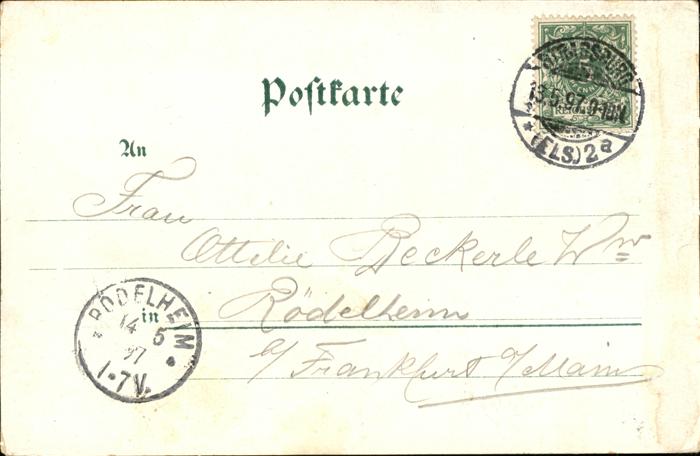 Postkarte
STRASSBURG
13.5.97.9-10N.
* (ELS.) 2a
An
Frau
Ottilie Beckerle Wwe
Rödelheim
in
b/ Frankfurt a/Main
RÖDELHEIM
14 5
97
1-7V.